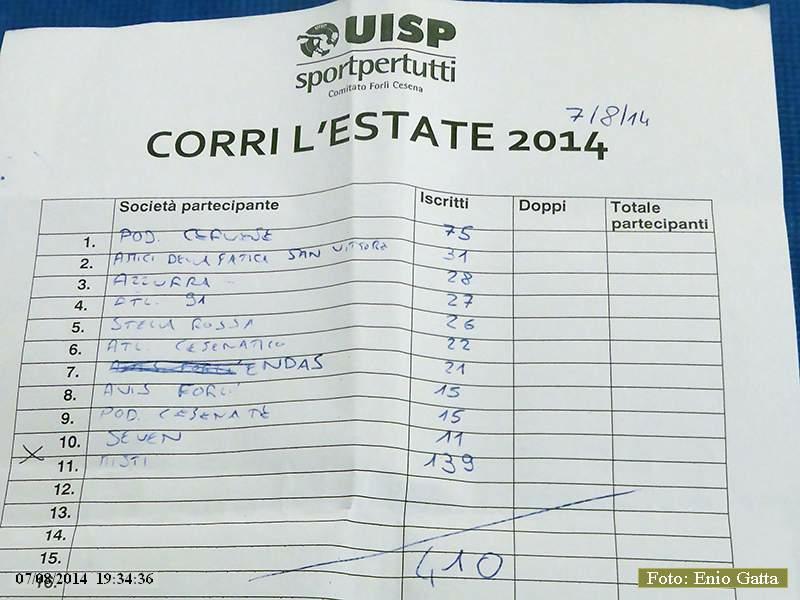 UISP
sportpertutti
Comitato Forlì Cesena
7/8/14
CORRI L'ESTATE 2014
Società partecipante Iscritti Doppi Totale partecipanti
1. POD. CERVESE 75
2. AMICI DELLA FATICA SAN VITTORE 31
3. AZZURRA 28
4. ATL. 91 27
5. STELLA ROSSA 26
6. ATL. CESENATICO 22
7. ENDAS 21
8. AVIS FORLI' 15
9. POD. CESENATE 15
10. SEVEN 11
X 11. MISTI 139
12.
13.
14.
15.
16.
410
07/08/2014 19:34:36
Foto: Enio Gatta